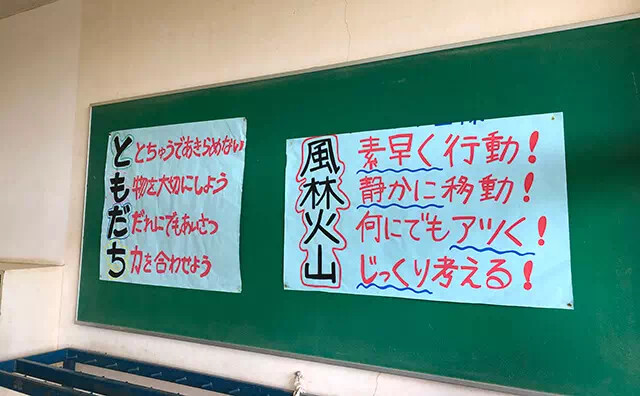 ともだち
とちゅうであきらめない
物を大切にしよう
だれにでもあいさつ
力を合わせよう
風林火山
素早く行動!
静かに移動!
何にでもアツく!
じっくり考える!